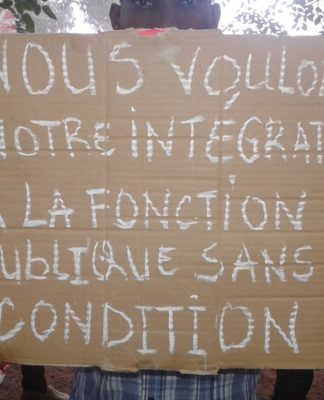 NOUS VOULO
NOTRE INTEGRAT
A LA FONCTION
PUBLIQUE SANS
CONDITION